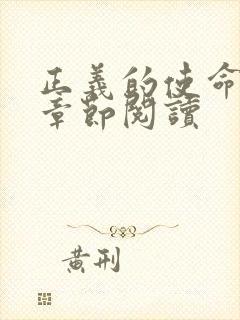 正義的使命
章節閱讀
黃刑